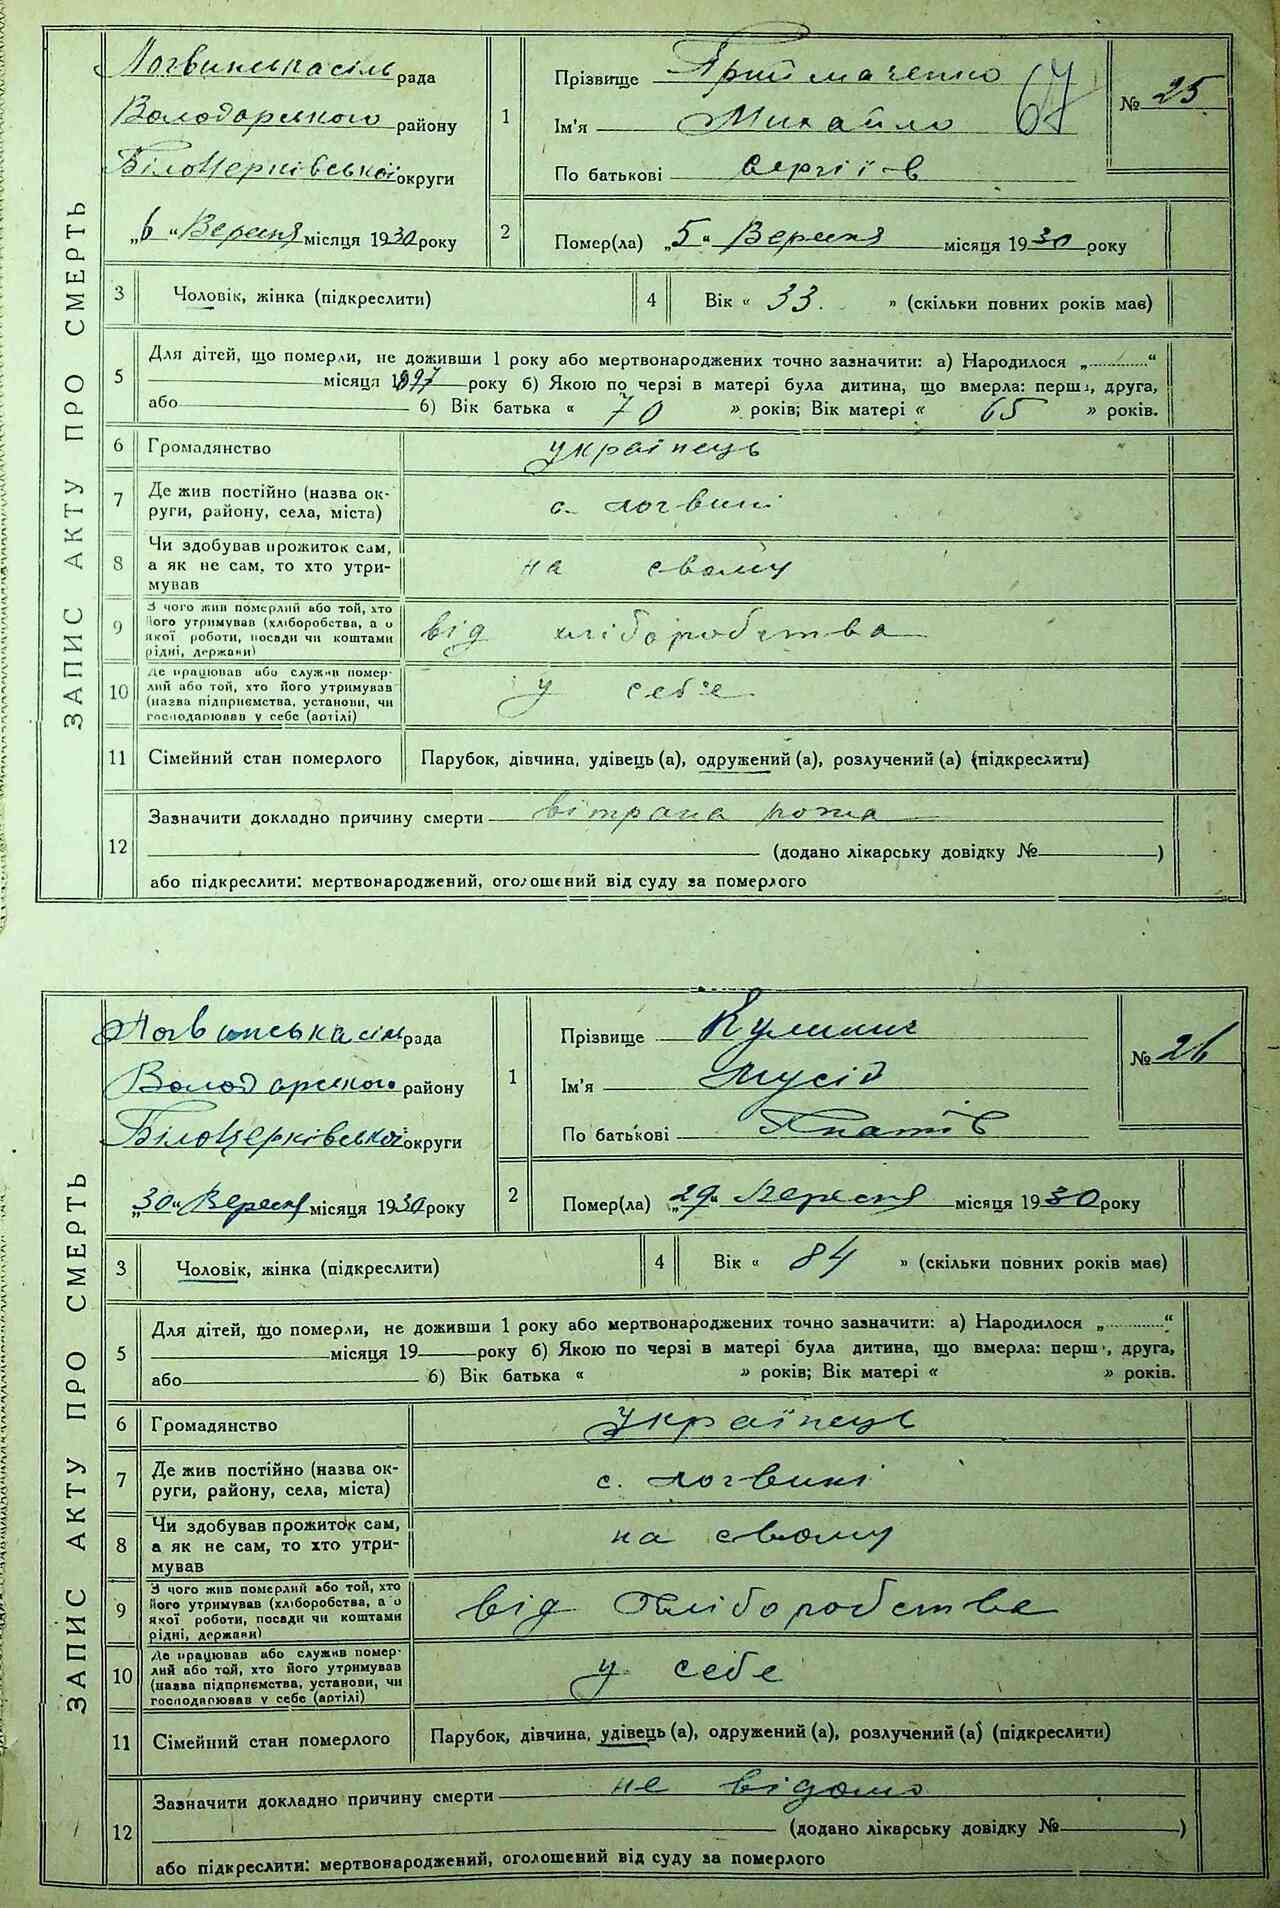 ЗАПИС АКТУ ПРО СМЕРТЬ
Логвинська сіль рада
Володарського району
Білоцерківської округи
„6“ Вересня місяця 1930 року
1
Прізвище Приймаченко
Ім'я Михайло
По батькові Сергіїв
67
№ 25
2
Помер(ла) „5“ Вересня місяця 1930 року
3 Чоловік, жінка (підкреслити)
4 Вік « 33. » (скільки повних років має)
5 Для дітей, що померли, не доживши 1 року або мертвонароджених точно зазначити: а) Народилося „ “
місяця 1897 року б) Якою по черзі в матері була дитина, що вмерла: перша, друга,
або б) Вік батька « 70 » років; Вік матері « 65 » років.
6 Громадянство українець
7 Де жив постійно (назва ок-
руги, району, села, міста) с. логвині
8 Чи здобував прожиток сам,
а як не сам, то хто утри-
мував на свому
9 З чого жив померлий або той, хто
його утримував (хліборобства, а о
якої роботи, посади чи коштами
рідні, держави) від хліборобства
10 Де працював або служив помер-
лий або той, хто його утримував
(назва підприємства, установи, чи
господарював у себе (артілі) у себе
11 Сімейний стан померлого Парубок, дівчина, удівець (а), одружений (а), розлучений (а) (підкреслити)
12 Зазначити докладно причину смерти вітрана рожа
(додано лікарську довідку № )
або підкреслити: мертвонароджений, оголошений від суду за померлого
ЗАПИС АКТУ ПРО СМЕРТЬ
Логвинська сіл рада
Володарського району
Білоцерківської округи
„30“ Вересня місяця 1930 року
1
Прізвище
Ім'я Мусій
По батькові Гнатів
№ 26
2
Помер(ла) „29“ Вересня місяця 1930 року
3 Чоловік, жінка (підкреслити)
4 Вік « 84 » (скільки повних років має)
5 Для дітей, що померли, не доживши 1 року або мертвонароджених точно зазначити: а) Народилося „ “
місяця 19 року б) Якою по черзі в матері була дитина, що вмерла: перш , друга,
або б) Вік батька « » років; Вік матері « » років.
6 Громадянство Українець
7 Де жив постійно (назва ок-
руги, району, села, міста) с. логвині
8 Чи здобував прожиток сам,
а як не сам, то хто утри-
мував на свому
9 З чого жив померлий або той, хто
його утримував (хліборобства, а о
якої роботи, посади чи коштами
рідні, держави) від Хліборобства
10 Де працював або служив помер-
лий або той, хто його утримував
(назва підприємства, установи, чи
господарював у себе (артілі) у себе
11 Сімейний стан померлого Парубок, дівчина, удівець (а), одружений (а), розлучений (а) (підкреслити)
12 Зазначити докладно причину смерти не відомо
(додано лікарську довідку № )
або підкреслити: мертвонароджений, оголошений від суду за померлого